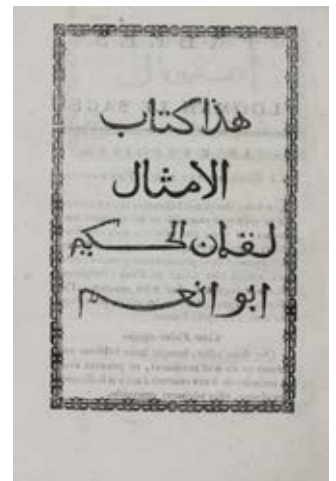 هذا كتاب
الامثال
لقمان الحكيم
ابو انعم